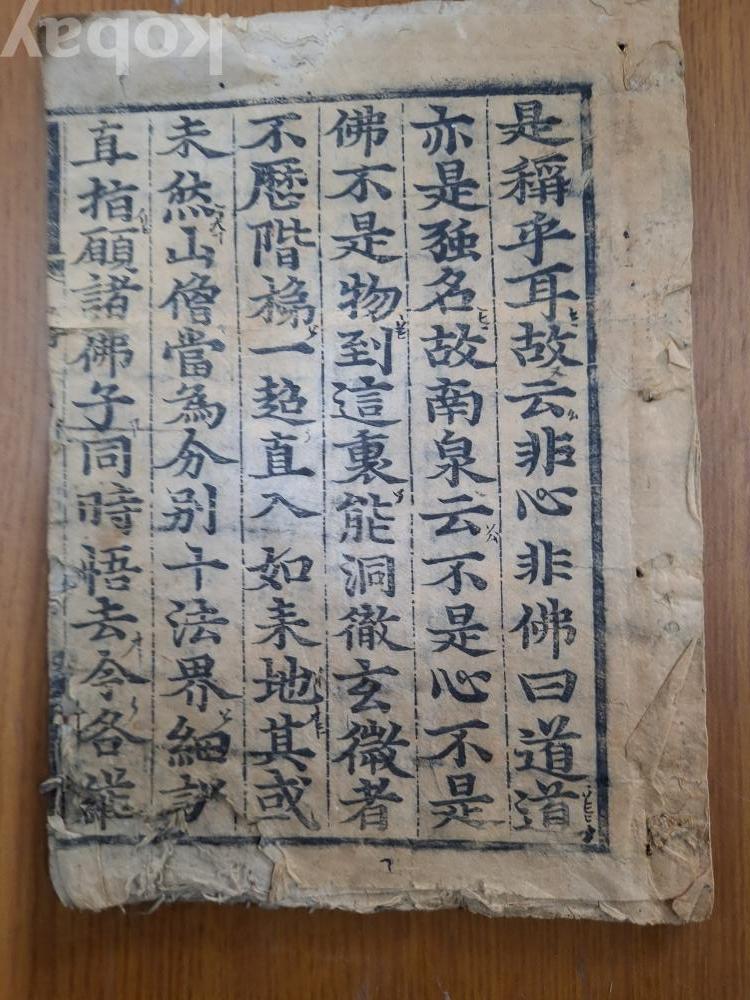 是稱乎耳故云非心非佛曰道道
亦是强名故南泉云不是心不是
佛不是物到這裏能洞徹玄微者
不歷階梯一超直入如来地其或
未然山僧當為分別十法界細説
直指願諸佛子同時悟去今各
kobay